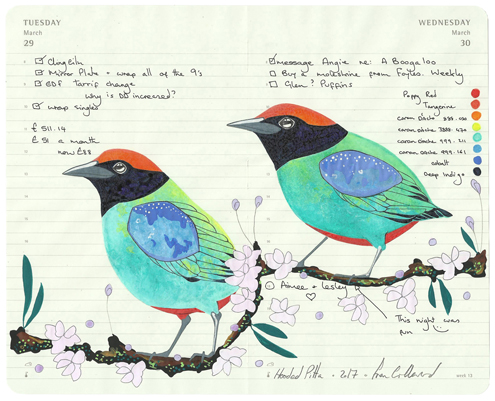 TUESDAY
March
29
Clingfilm
Mirror Plate + wrap all of the 9's
EDF Tarrif change
why is DD increased?
wrap singles
£ 511.14
£ 51 a month
now £88
WEDNESDAY
March
30
Message Angie re: A Boogaloo
Buy a moleskine from Foyles. Weekly
Glen? Puffins
Poppy Red
Tangerine
caran dache
caran dache
caran dache
caran dache 999.161
cobalt
Deep Indigo
Aimee + Lesley
This night was
fun
Hooded Pitta - 2017 -